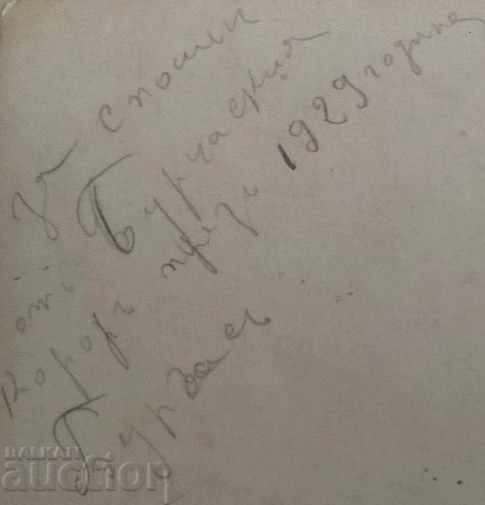 За спомен
отъ Бургаския
Короръ презъ 1929 година
Бургасъ
BALKAN
auction